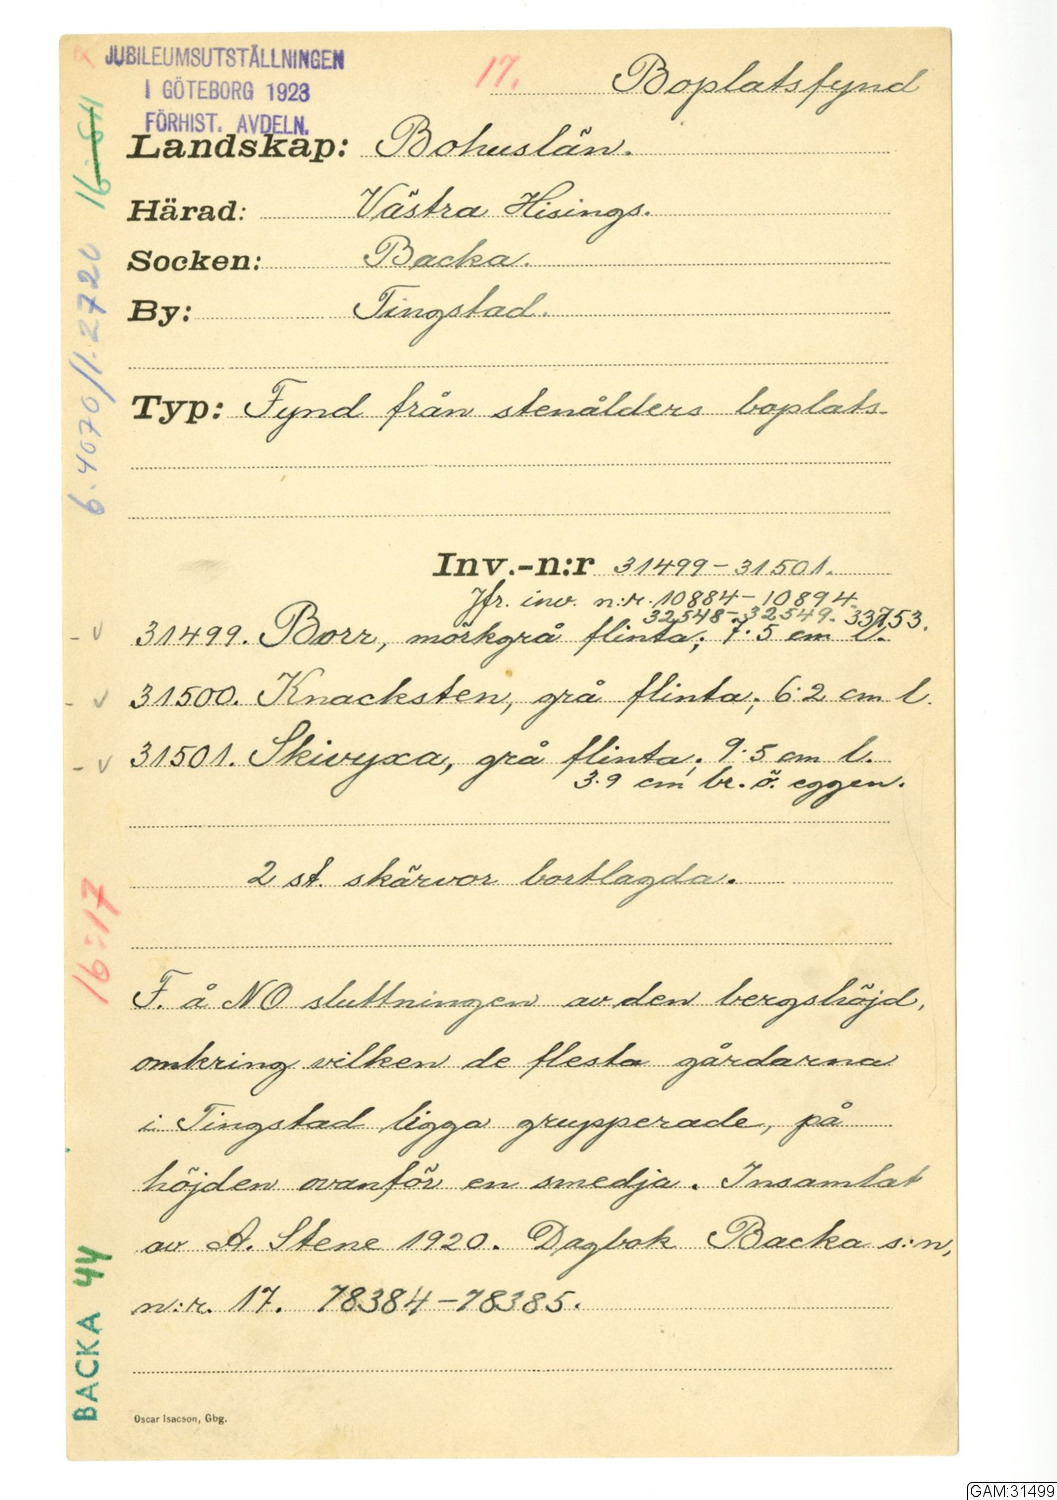 JUBILEUMSUTSTÄLLNINGEN
I GÖTEBORG 1923
FÖRHIST. AVDELN.
17.
Boplatsfynd
Landskap: Bohuslän.
Härad: Västra Hisings.
Socken: Backa.
By: Tingstad.
Typ: Fynd från stenålders boplats
Inv.-n:r 31499-31501.
Jfr. inv. n:r. 10884-10894.
32548-32549.
31499. Borr, mörkgrå flinta; 7.5 cm l.
31500. Knacksten, grå flinta; 6.2 cm l.
31501. Skivyxa, grå flinta; 9.5 cm l.
3.9 cm br. ö. eggen.
2 st. skärvor bortlagda.
F. å NO sluttningen av den bergshöjd,
omkring vilken de flesta gårdarna
i Tingstad ligga grupperade, på
höjden ovanför en smedja. Insamlat
av A. Stene 1920. Dagbok Backa s:n,
n:r. 17. 78384-78385.
Oscar Isacson, Gbg.
6.4070/1-2720
16:17
BACKA 44
GAM:31499